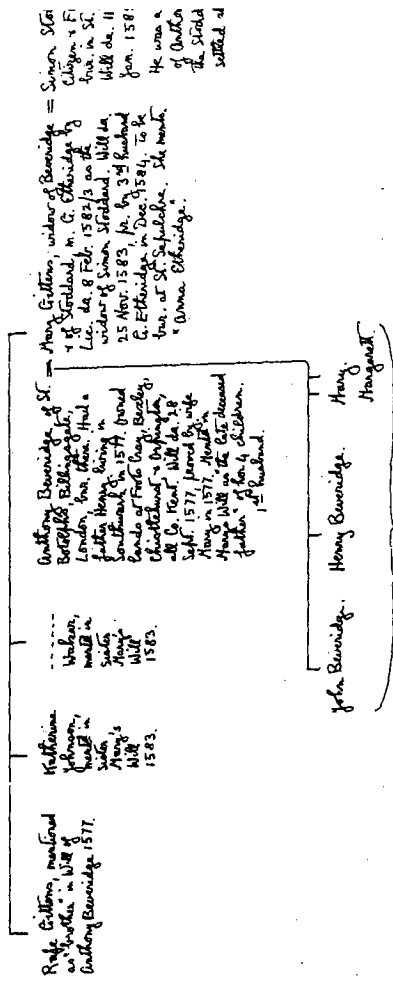 Rafe Gittens, mentioned
as "brother" in Will of
Anthony Beveridge 1577.
Katherine
Johnson,
mentd in
Sister
Mary's
Will
1583.
------
Waker,
mentd in
sister
Mary's
Will
1583.
Anthony Beveridge of St.
Botolphs, Billingsgate
London, bur. there. Had a
father Henry living in
Southwark in 1577, owned
lands at Foots Cray, Bexley,
Chislehurst & Orpington,
all Co. Kent. Will da. 28
Sept. 1577, proved by wife
Mary in 1577. Mentd in
Mary's Will as "the late deceased
father" of her 4 children.
1st husband.
=
Mary Gittens, widow of Beveridge
& of Stoddard, m. G. Etheridge by
Lic. da. 8 Feb. 1582/3 as the
widow of Simon Stoddard. Will da.
25 Nov. 1583, pr. by 3rd husband
G. Etheridge in Dec. 1584. To be
bur. at St. Sepulchre. She mentd.
"Anna Etheridge".
=
Simon Stod
Citizen & Fi
bur. in St.
Will da. 11
Jan. 158
He was a
of Antho
the Stodd
settled at
John Beveridge.
Henry Beveridge.
Mary.
Margarett.